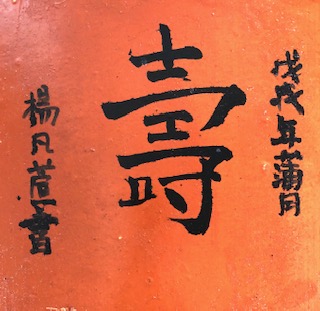 戊戌年蒲月
壽
楊凡萱書